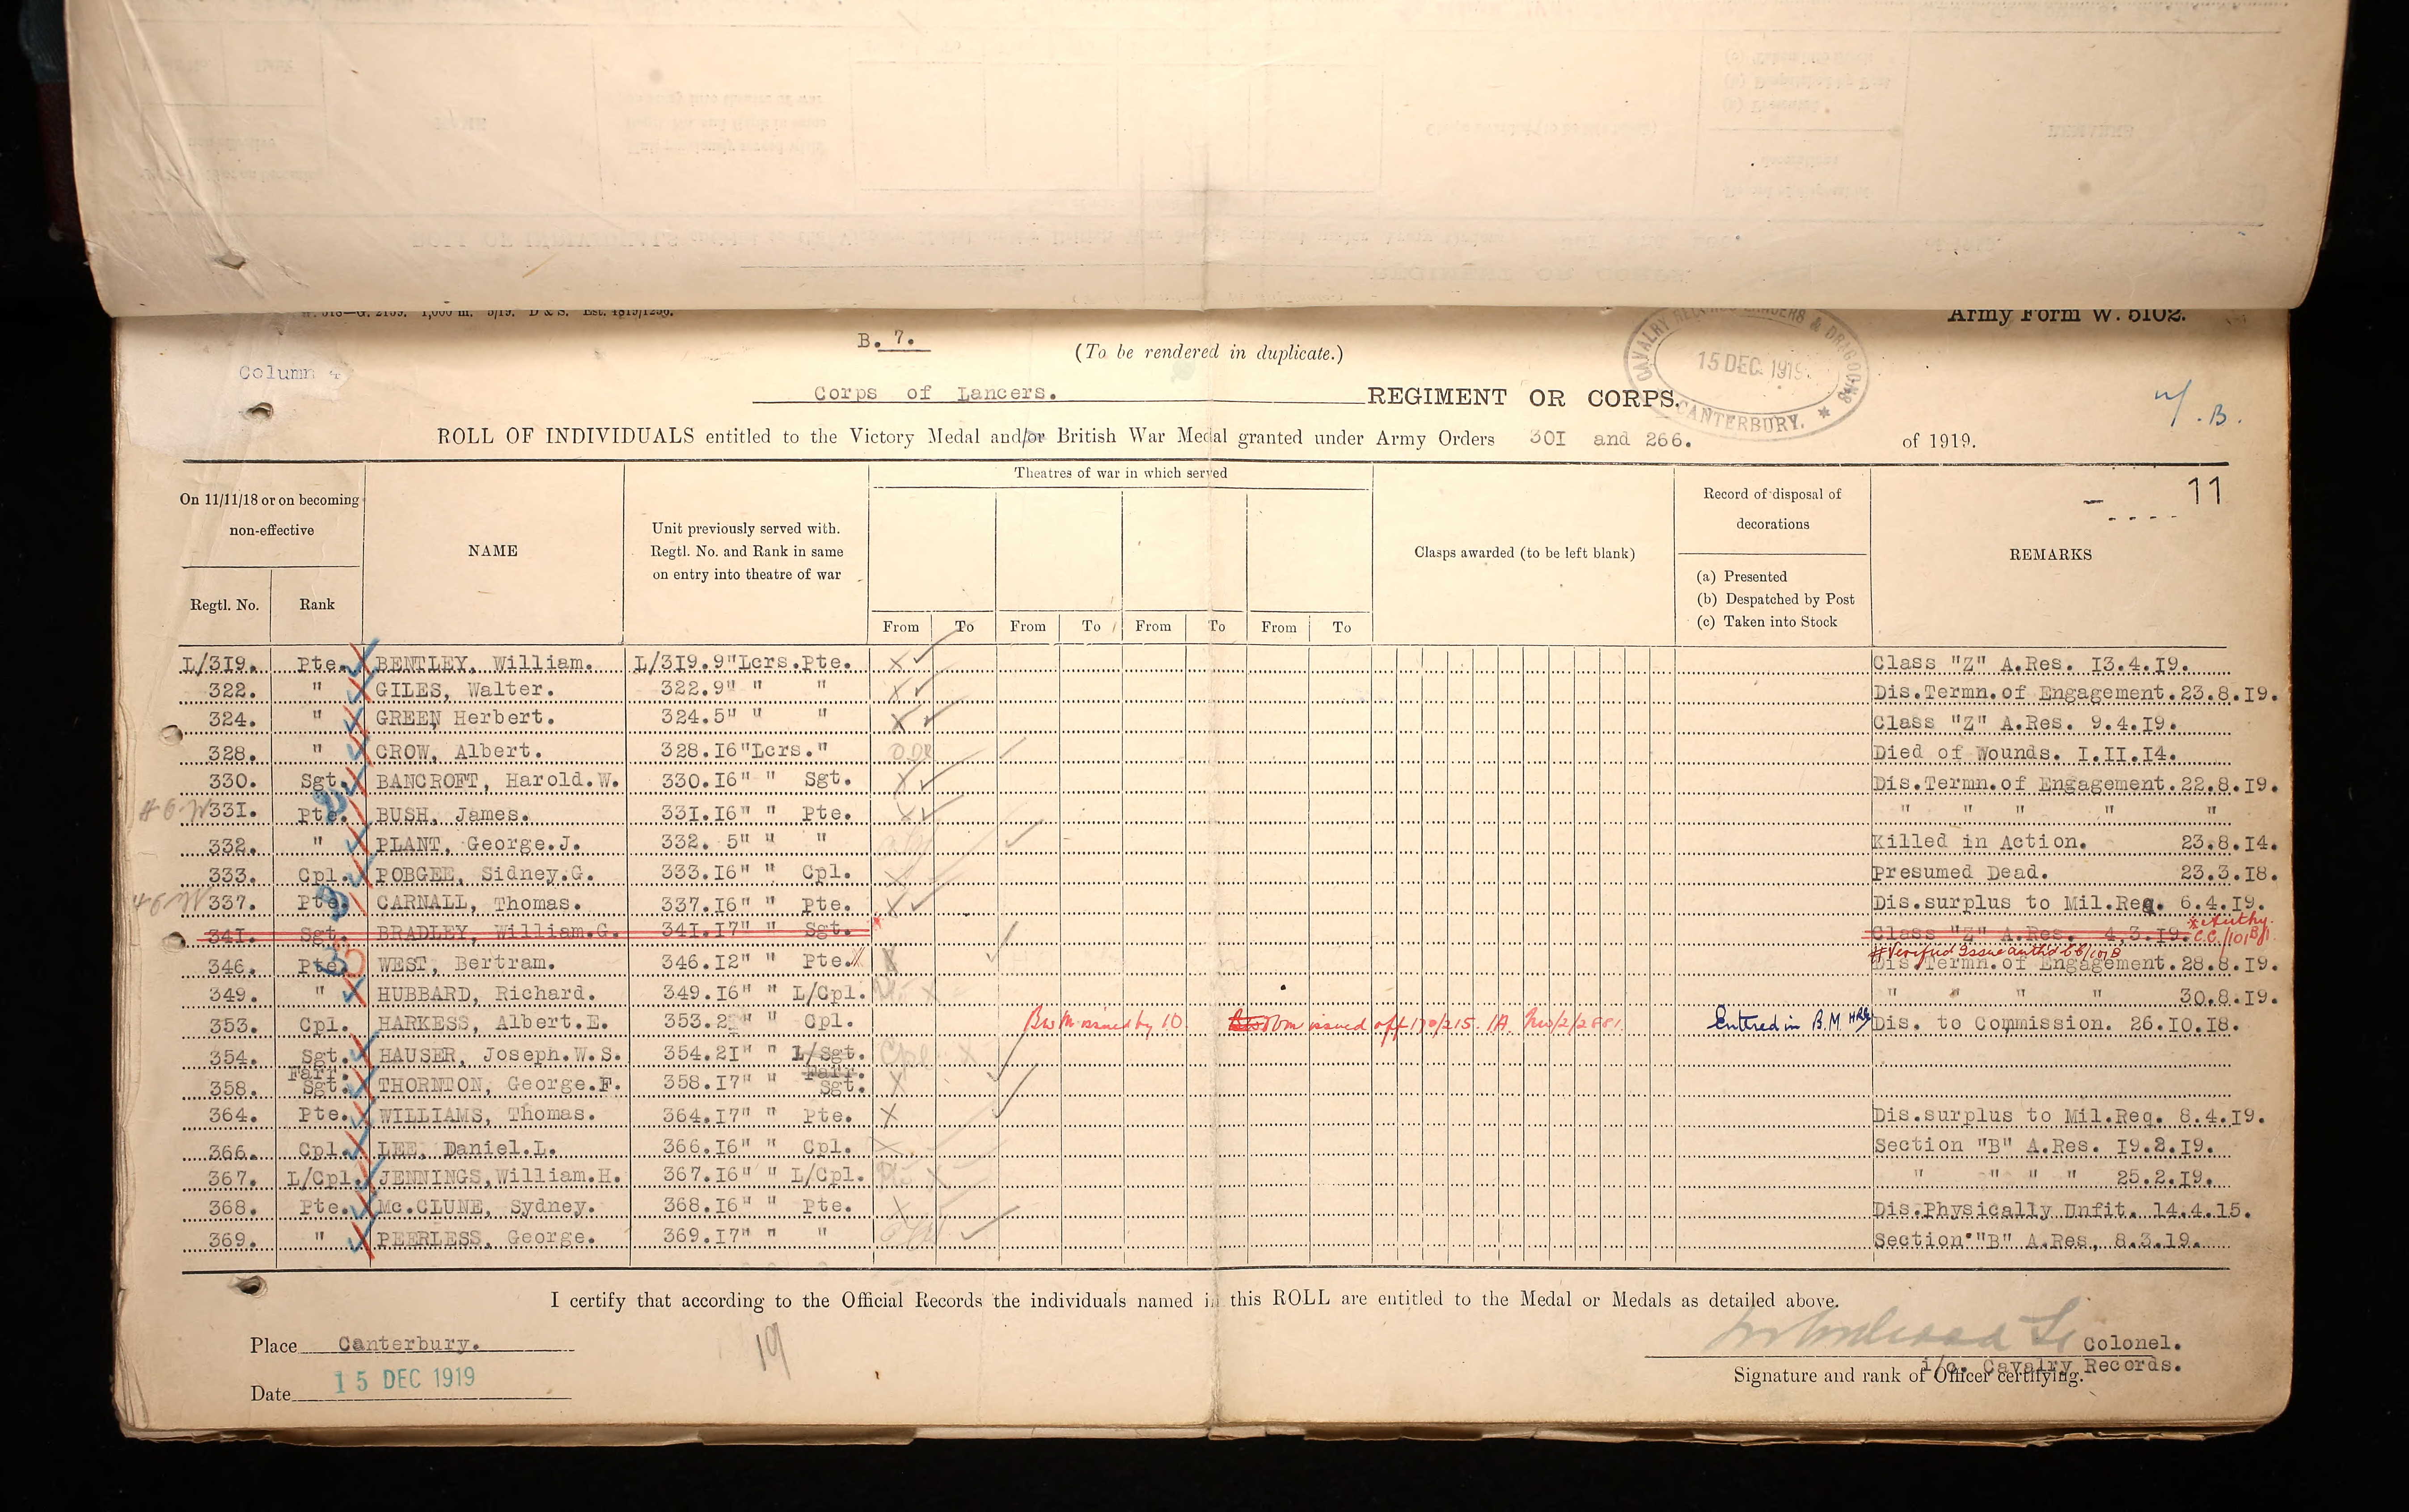 Army Form W. 5102.
B. 7.
(To be rendered in duplicate.)
CAVALRY RECORDS LANCERS & DRAGOONS
15 DEC. 1919.
CANTERBURY.
Column 4
Corps of Lancers. REGIMENT OR CORPS.
ROLL OF INDIVIDUALS entitled to the Victory Medal and/or British War Medal granted under Army Orders 301 and 266. of 1919.
11
On 11/11/18 or on becoming non-effective
Regtl. No. Rank
NAME
Unit previously served with. Regtl. No. and Rank in same on entry into theatre of war
Theatres of war in which served
From To From To From To From To
Clasps awarded (to be left blank)
Record of disposal of decorations
(a) Presented
(b) Despatched by Post
(c) Taken into Stock
REMARKS
L/319. Pte. BENTLEY, William. L/319.9"Lcrs.Pte. X Class "Z" A.Res. 13.4.19.
322. " GILES, Walter. 322.9" " " X Dis.Termn.of Engagement.23.8.19.
324. " GREEN Herbert. 324.5" " " X Class "Z" A.Res. 9.4.19.
328. " CROW, Albert. 328.16"Lcrs." Died of Wounds. 1.11.14.
330. Sgt. BANCROFT, Harold.W. 330.16" " Sgt. X Dis.Termn.of Engagement.22.8.19.
331. Pte. BUSH, James. 331.16" " Pte. X " " " " "
332. " PLANT, George.J. 332. 5" " " Killed in Action. 23.8.14.
333. Cpl. POBGEE, Sidney.G. 333.16" " Cpl. X Presumed Dead. 23.3.18.
337. Pte. CARNALL, Thomas. 337.16" " Pte. X Dis.surplus to Mil.Req. 6.4.19.
341. Sgt. BRADLEY, William.G. 341.17" " Sgt. * Class "Z" A.Res. 4.3.19. * Authy. C.C./101B/1
346. Pte. WEST, Bertram. 346.12" " Pte. X Dis.Termn.of Engagement.28.8.19.
349. " HUBBARD, Richard. 349.16" " L/Cpl. X " " " " 30.8.19.
353. Cpl. HARKESS, Albert.E. 353.2 " " Cpl. BWM issued by 10 issued off 170/215 1A Entered in B.M. Dis. to Commission. 26.10.18.
354. Sgt. HAUSER, Joseph.W.S. 354.21" " L/Sgt. Cpl X
358. Farr. Sgt. THORNTON, George.F. 358.17" " Farr. Sgt. X
364. Pte. WILLIAMS, Thomas. 364.17" " Pte. X Dis.surplus to Mil.Req. 8.4.19.
366. Cpl. LEE, Daniel.L. 366.16" " Cpl. X Section "B" A.Res. 19.2.19.
367. L/Cpl. JENNINGS,William.H. 367.16" " L/Cpl. X " " " " 25.2.19.
368. Pte. Mc.CLUNE, Sydney. 368.16" " Pte. X Dis.Physically Unfit. 14.4.15.
369. " PEERLESS, George. 369.17" " " Section "B" A.Res, 8.3.19.
I certify that according to the Official Records the individuals named in this ROLL are entitled to the Medal or Medals as detailed above.
Place Canterbury.
19
Colonel.
i/c. Cavalry Records.
Signature and rank of Officer certifying.
Date 15 DEC 1919